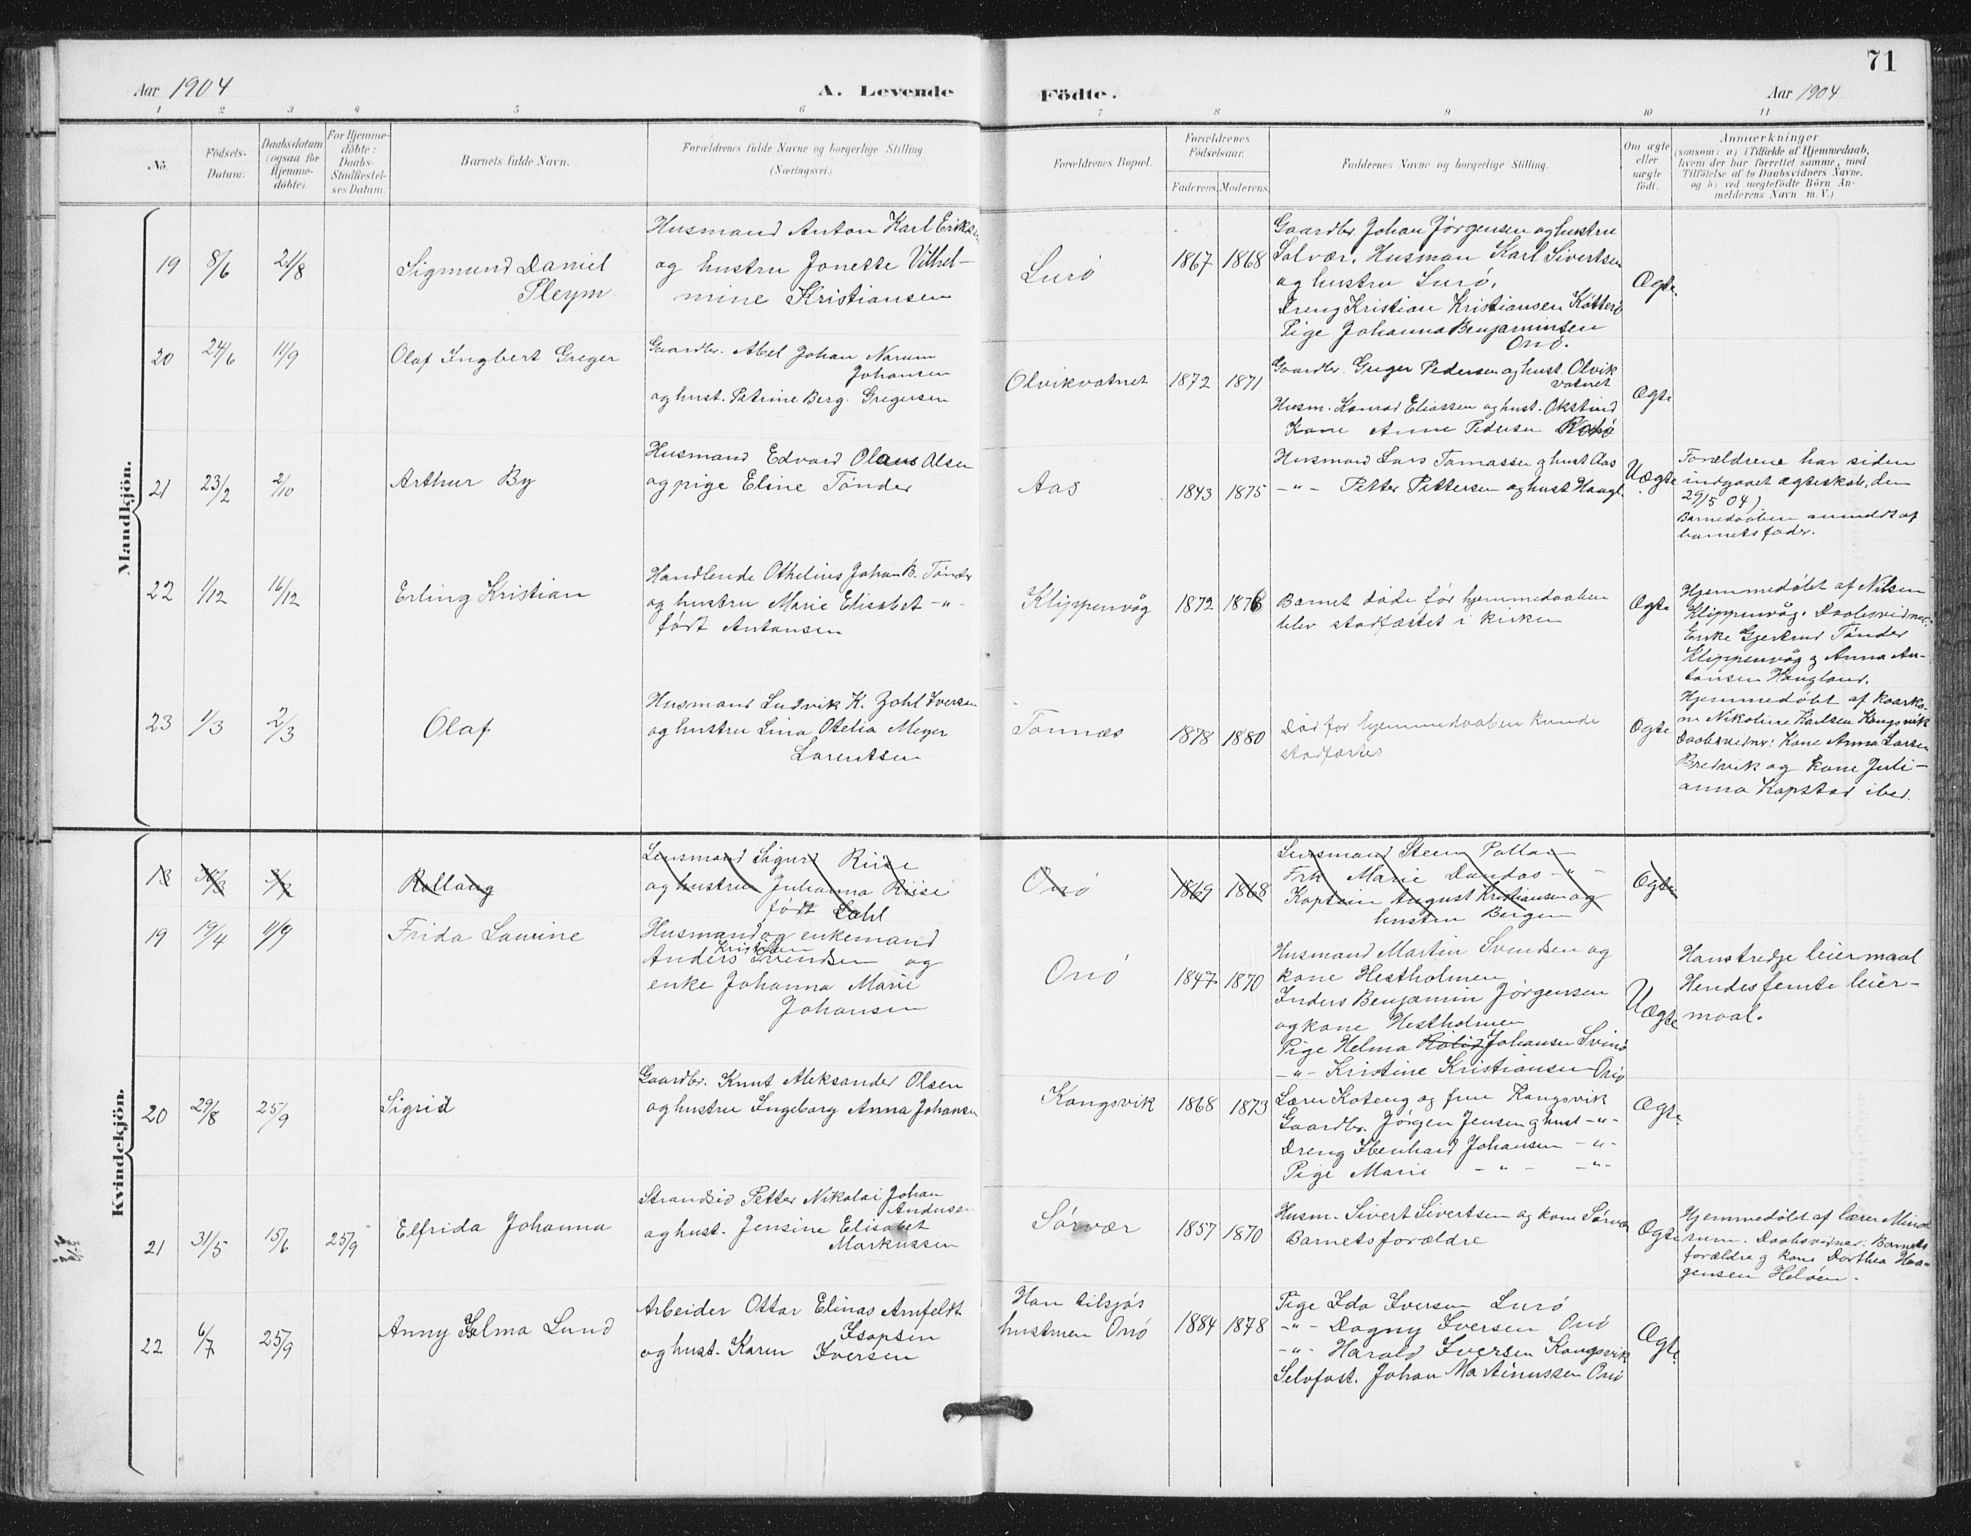 71
Aar 1904 A. Levende Födte. Aar 1904
1 2 3 4 5 6 7 8 9 10 11
No.
Födsels-
Datum.
Daabsdatum
(ogsaa for
Hjemme-
döbte).
For Hjemme-
döbte:
Daabs-
Stadfæstel-
ses Datum.
Barnets fulde Navn.
Forældrenes fulde Navne og borgerlige Stilling
(Næringsvei.)
Forældrenes Bopæl.
Forældrenes
Födselsaar.
Faderens. Moderens.
Faddernes Navne og borgerlige Stilling.
Om ægte
eller
uægte
födt.
Anmærkninger
(saasom: a) i Tilfælde af Hjemmedaab,
hvem der har forrettet samme, med
Tilföielse af to Daabsvidners Navne,
og b) ved uegtefödte Börn An-
melderens Navn m. V.)
Mandkjön.
19 8/6 21/8
Sigmund Daniel
Pleym
Husmand Anton Karl Eriksen
og hustru Jonette Vilhel-
mine Kristiansen
Lurö
1867 1868
Gaardbr. Johan Jørgensen og hustru
Solvær. Husman Karl Sivertsen
og hustru Lurö.
Dreng Kristian Kristiansen Kötterö
Pige Johanna Benjaminsen
Onö.
Ægte
20 24/6 11/9
Olaf Ingbert Greger
Gaardbr. Abel Johan Narum
Johansen
og hust. Petrine Berg. Gregersen
Olvikvatnet
1872 1871
Gaardbr. Greger Pedersen og hust. Olvik
vatnet
Husm. Konrad Eliassen og hust. Okstind
Kone Anne Pedersen
Ægte
21 23/2 2/10
Arthur By
Husmand Edvard Olaus Olsen
og pige Eline Tönder
Aas
1843 1875
Husmand Lars Tomassen og hust Aas
-"- Petter Pettersen og hust Haugl.
Uægte
Forældrene har siden
indgaaet ægteskab, den
29/5 04).
Barnedaaben anmeldt af
barnets fader.
22 1/12 16/12
Erling Kristian
Handlende Othelius Johan B. Tönder
og hustru Marie Elisabet -"-
født Antonsen
Klippenvåg
1872 1876
Barnet døde før hjemmedaaben
blev stadfæstet i kirken
Ægte
Hjemmedøbt af Nilsen
Klippenvåg. Daabsvidner:
Enke Gjertrud Tönder
Klippenvåg og Anna An-
tonsen Haugland.
23 1/3 2/3
Olaf
Husmand Ludvik K. Zahl Iversen
og hustru Lina Otelia Meyer
Lorentsen
Tonnæs
1878 1880
Død før hjemmedaaben kunde
stadfæstes
Ægte
Hjemmedøbt af kaarko-
ne Nikoline Karlsen Kongsvik
Daabsvidner: Kone Anna Larsen
Bredvik og kone Juli-
anna Kopstad ibid.
Kvindekjön.
13
Rollaug
Lensmand Sigurd Riise
og hustru Johanna Riise
født Dahl
Onö
1869 1868
Lensmand Steen Pallan
Frk Marie Dundas -"-
Kaptein August Kristiansen og
hustru Bergen
Ægte
19 19/4 11/9
Frida Laurine
Husmand og enkemand
Kristian
Anders Svendsen og
enke Johanna Marie
Johansen
Onö
1847 1870
Husmand Martin Svendsen og
kone Hestholmen
Inders Benjamin Jørgensen
og kone Hestholmen
Pige Helma Johansen Svinö
-"- Kristine Kristiansen Onö
Uægte
Hans tredje leiermaal
Hendes femte leier-
maal.
20 29/8 25/9
Sigrid
Gaardbr. Knut Aleksander Olsen
og hustru Ingeborg Anna Johansen
Kongsvik
1868 1873
Lærer Koteng og frue Kongsvik
Gaardbr. Jørgen Jensen og hust -"-
Dreng Ebenhard Johansen -"-
Pige Marie -"- -"-
Ægte
21 31/5 15/6 25/9
Elfrida Johanna
Strandsid Petter Nikolai Johan
Andersen
og hust. Jensine Elisabet
Markussen
Sørvær
1857 1870
Husm. Sivert Sivertsen og kone Sørvær
Barnets forældre
Ægte
Hjemmedøbt af lærer Mind
rum. Daabsvidner: Barnets
forældre og kone Dorthea Haa-
gensen Heløen.
22 6/7 25/9
Anny Helma Lund
Arbeider Ottar Elinas Amfeldt
Isaksen
og hust. Karen Iversen
Han tilsjøs
hustruen Onö
1884 1878
Pige Ida Iversen Lurö
-"- Dagny Iversen Onö
-"- Harald Iversen Kongsvik
Selvfost. Johan Martinussen Onö
Ægte